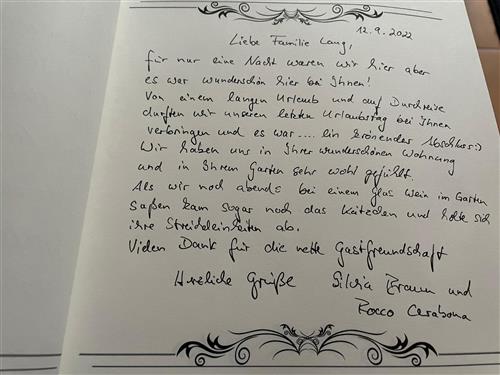 12.9.2022
Liebe Familie Lang,
für nur eine Nacht waren wir hier aber
es war wunderschön hier bei Ihnen!
Von einem langen Urlaub und auf Durchreise
durften wir unseren letzten Urlaubstag bei Ihnen
verbringen und es war.... ein krönender Abschluss:)
Wir haben uns in Ihrer wunderschönen Wohnung
und in Ihrem Garten sehr wohl gefühlt.
Als wir noch abends bei einem Glas Wein im Garten
saßen kam sogar noch das Kätzchen und holte sich
ihre Streicheleinheiten ab.
Vielen Dank für die nette Gastfreundschaft
Herzliche Grüße Silvia Braun und
Rocco